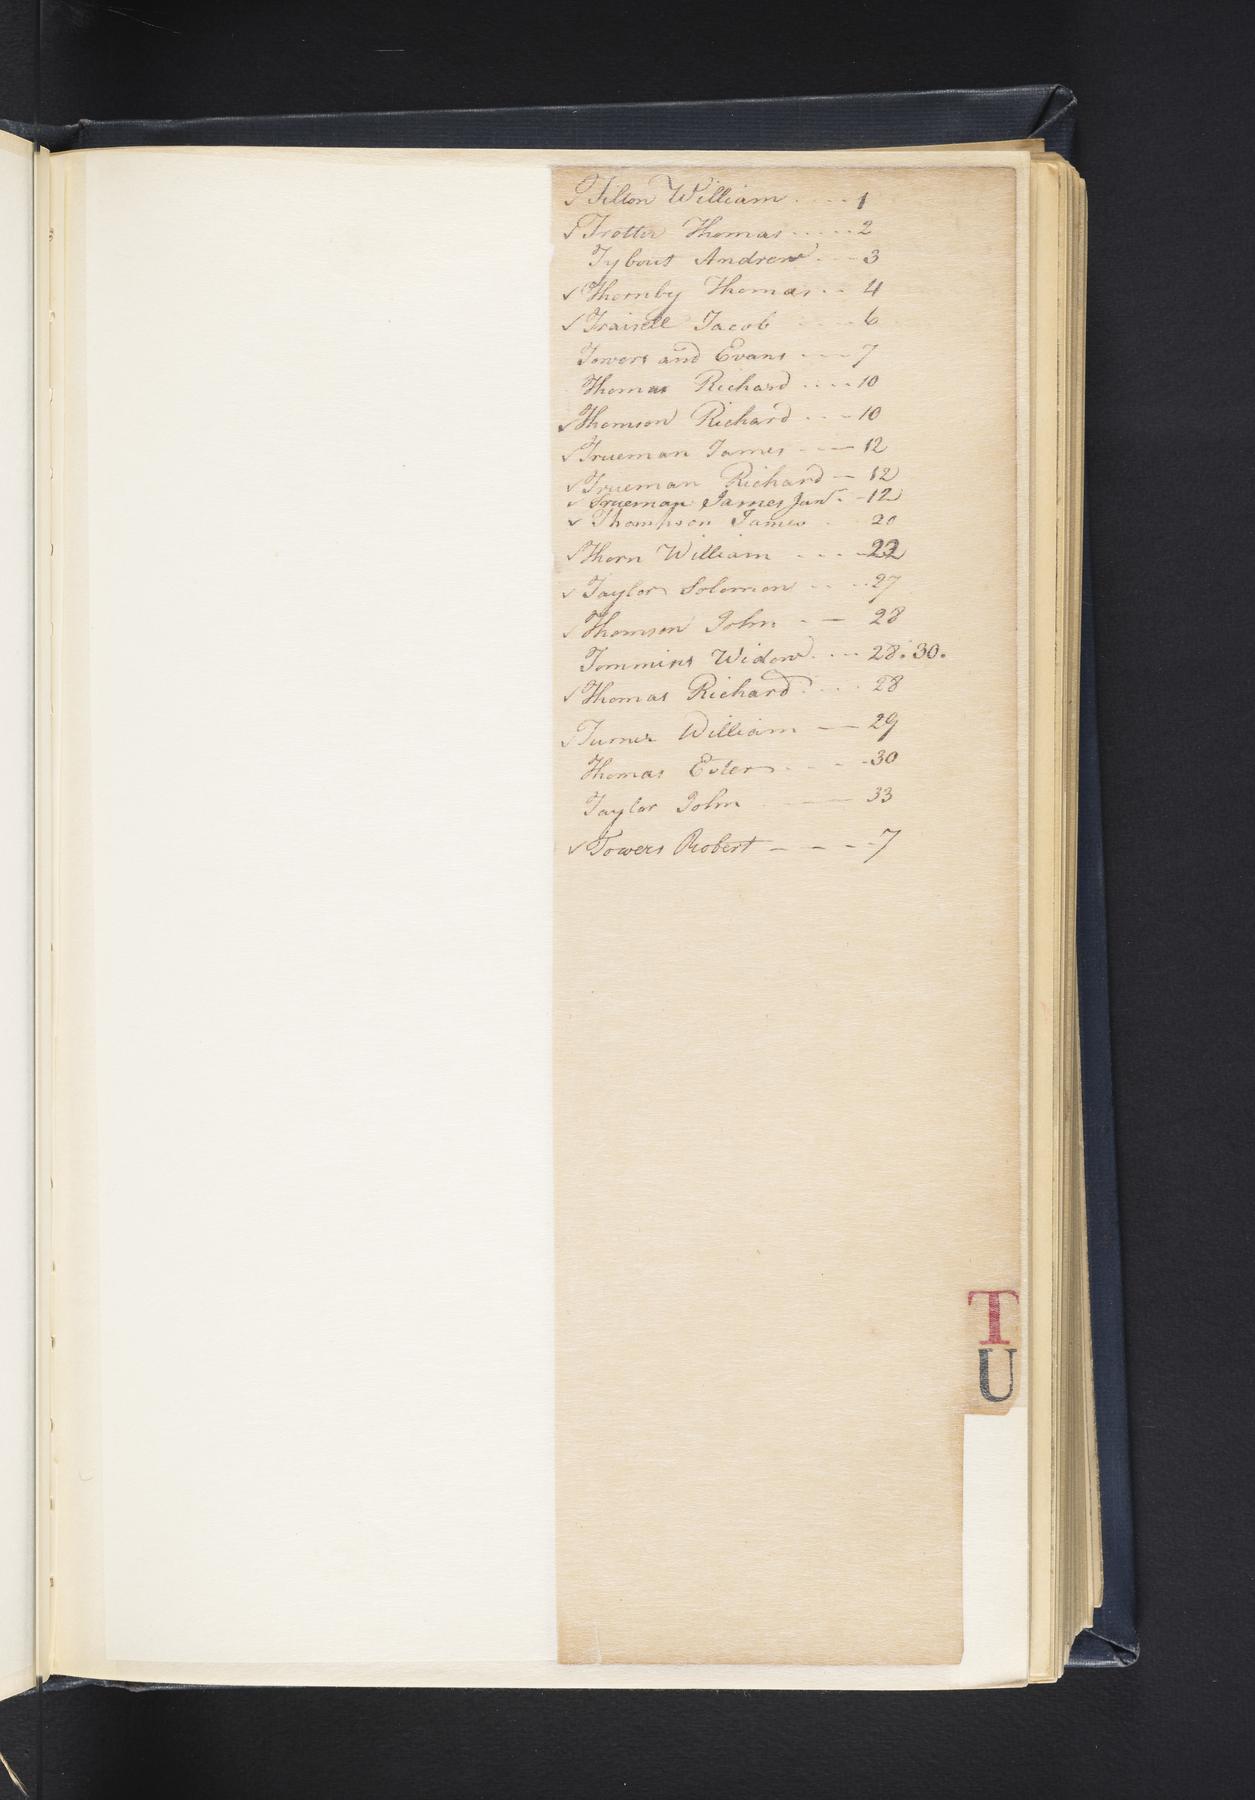 ✓ Tilton William .... 1
✓ Trotter Thomas ..... 2
Tybout Andrew . . - 3
✓ Thornby Thomas .. - 4
✓ Jacob .... 6
Towers and Evans .... 7
Thomas Richard .... 10
✓ Thomson Richard .... 10
✓ Trueman James - - — 12
✓ Trueman Richard — 12
✓ Trueman James Junr. - 12
✓ Thompson James . 20
✓ Thorn William .... 22
✓ Taylor Solomon .... 27
✓ Thomson John . — 28
Tommins Widow .... 28. 30.
✓ Thomas Richard .... 28
✓ Turner William — 29
Thomas Ester .... 30
Taylor John — 33
✓ Towers Robert — — - - 7
T
U